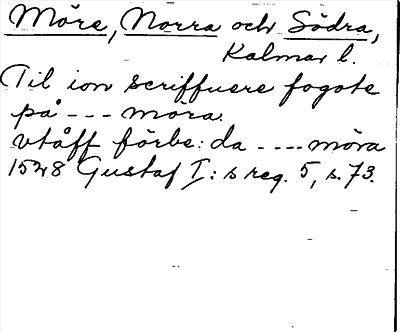 Möre, Norra och Södra,
Kalmar l.
Til ion scriffuere fogote
på --- möra.
vtåff förbe: da ---- möra
1548 Gustaf I: s reg. 5, s. 73.